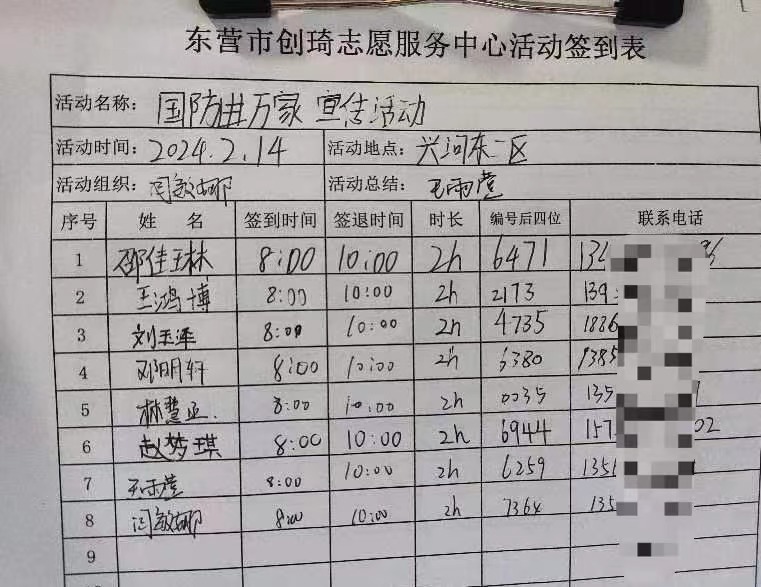 东营市创琦志愿服务中心活动签到表
活动名称: 国防进万家 宣传活动
活动时间: 2024.2.14 活动地点: 兴河东二区
活动组织: 闫敏娜 活动总结: 王雨莹
序号 姓 名 签到时间 签退时间 时长 编号后四位 联系电话
1 邵佳琳 8:00 10:00 2h 6471 134
2 王鸿博 8:00 10:00 2h 2173 139
3 刘玉泽 8:00 10:00 2h 4735 1886
4 邓明轩 8:00 10:00 2h 6380 1385
5 林慧亚. 8:00 10:00 2h 0035 135
6 赵梦琪 8:00 10:00 2h 6944 157 02
7 王雨莹 8:00 10:00 2h 6259 1356
8 闫敏娜 8:00 10:00 2h 7364 135
9